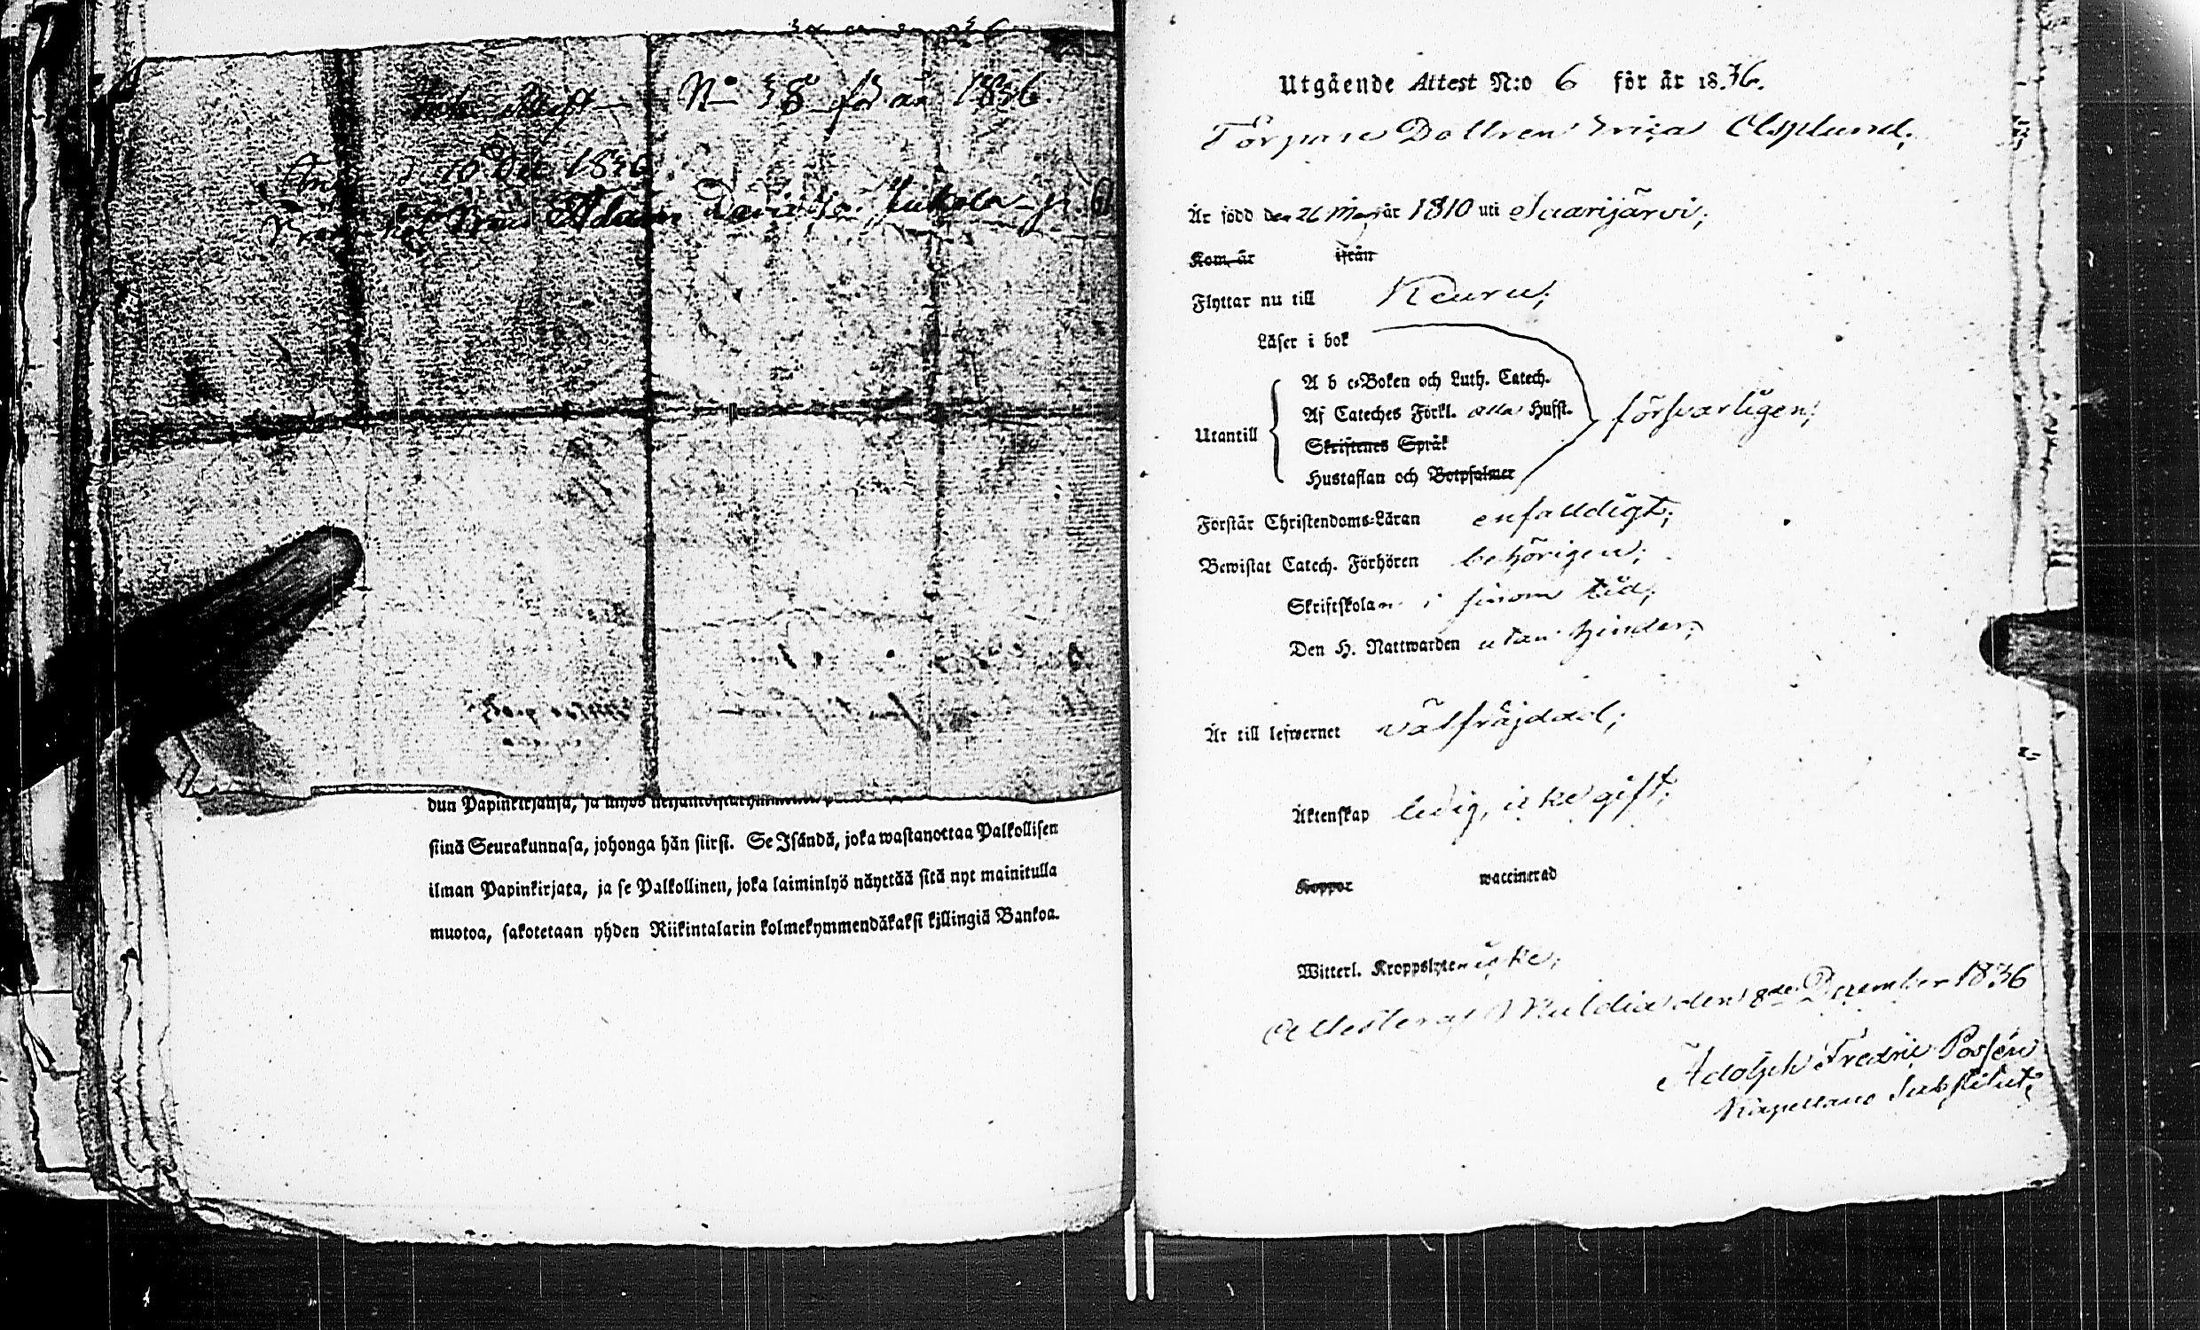 No 38 för år 1836.
d. 10 Dec 1836.
Adam
stinä Seurakunnasa, johonga hän siirsi. Se Isändä, joka wastanottaa Palkollisen
ilman Papinkirjata, ja se Palkollinen, joka laiminlyö näyttää sitä nyt mainitulla
muotoa, sakotetaan yhden Riikintalarin kolmekymmendäkaksi killingiä Bankoa.
Utgående Attest N:o 6 för år 1836.
Torpare Dottren Asplund;
Är född den 26 år 1810 uti Saarijärvi;
Kom, år ifrån
Flyttar nu till Keuru;
Läser i bok
A b c-Boken och Luth. Catech.
Af Cateches Förkl. Husst. försvarligen;
Utantill
Skriftenes Språk
Hustaflan och Botpsalmer
Förstår Christendoms-Läran enfalldigt;
Bewistat Catech. Förhören behörigen;
Skriftskolan i sinom tid;
Den H. Nattwarden utan hinder;
Är till lefwernet välfräjdad;
Äktenskap ledig, icke gift;
Koppor waccinerad
Witterl. Kroppslyten icke;
Multia den 8de December 1836
Adolph Fredric
Kapellans Substitut;